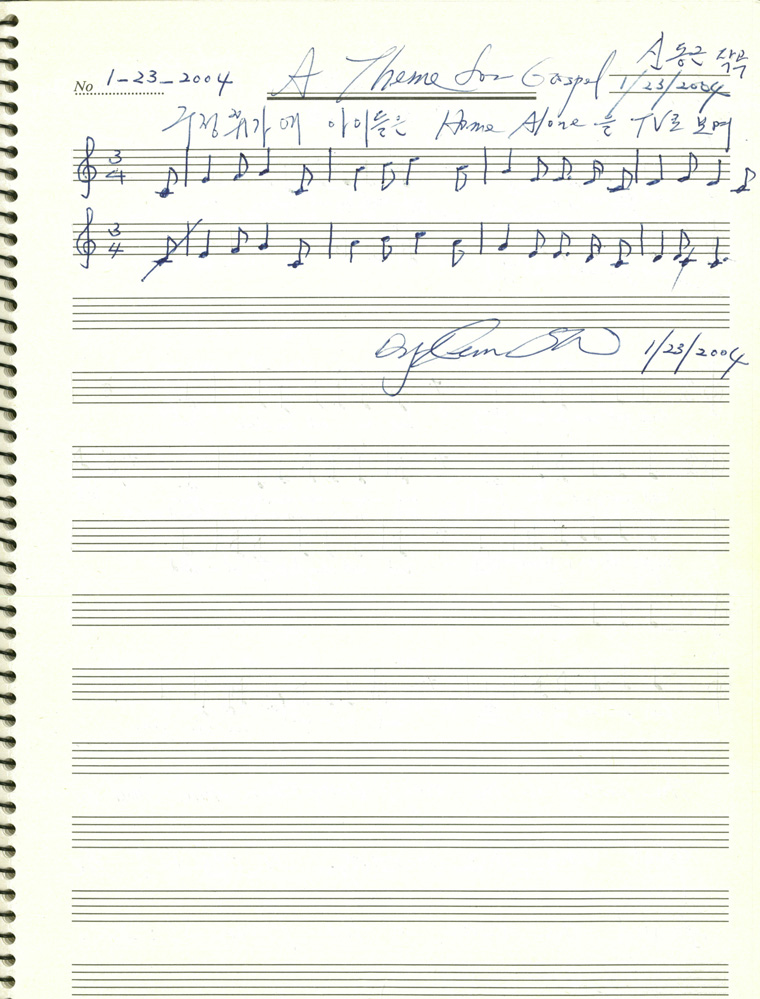 No 1-23-2004
A Theme for Gospel
신동근 작곡
1/23/2004
구정 휴가에 아이들은 Home Alone을 TV로 보며
3
4
3
4
1/23/2004